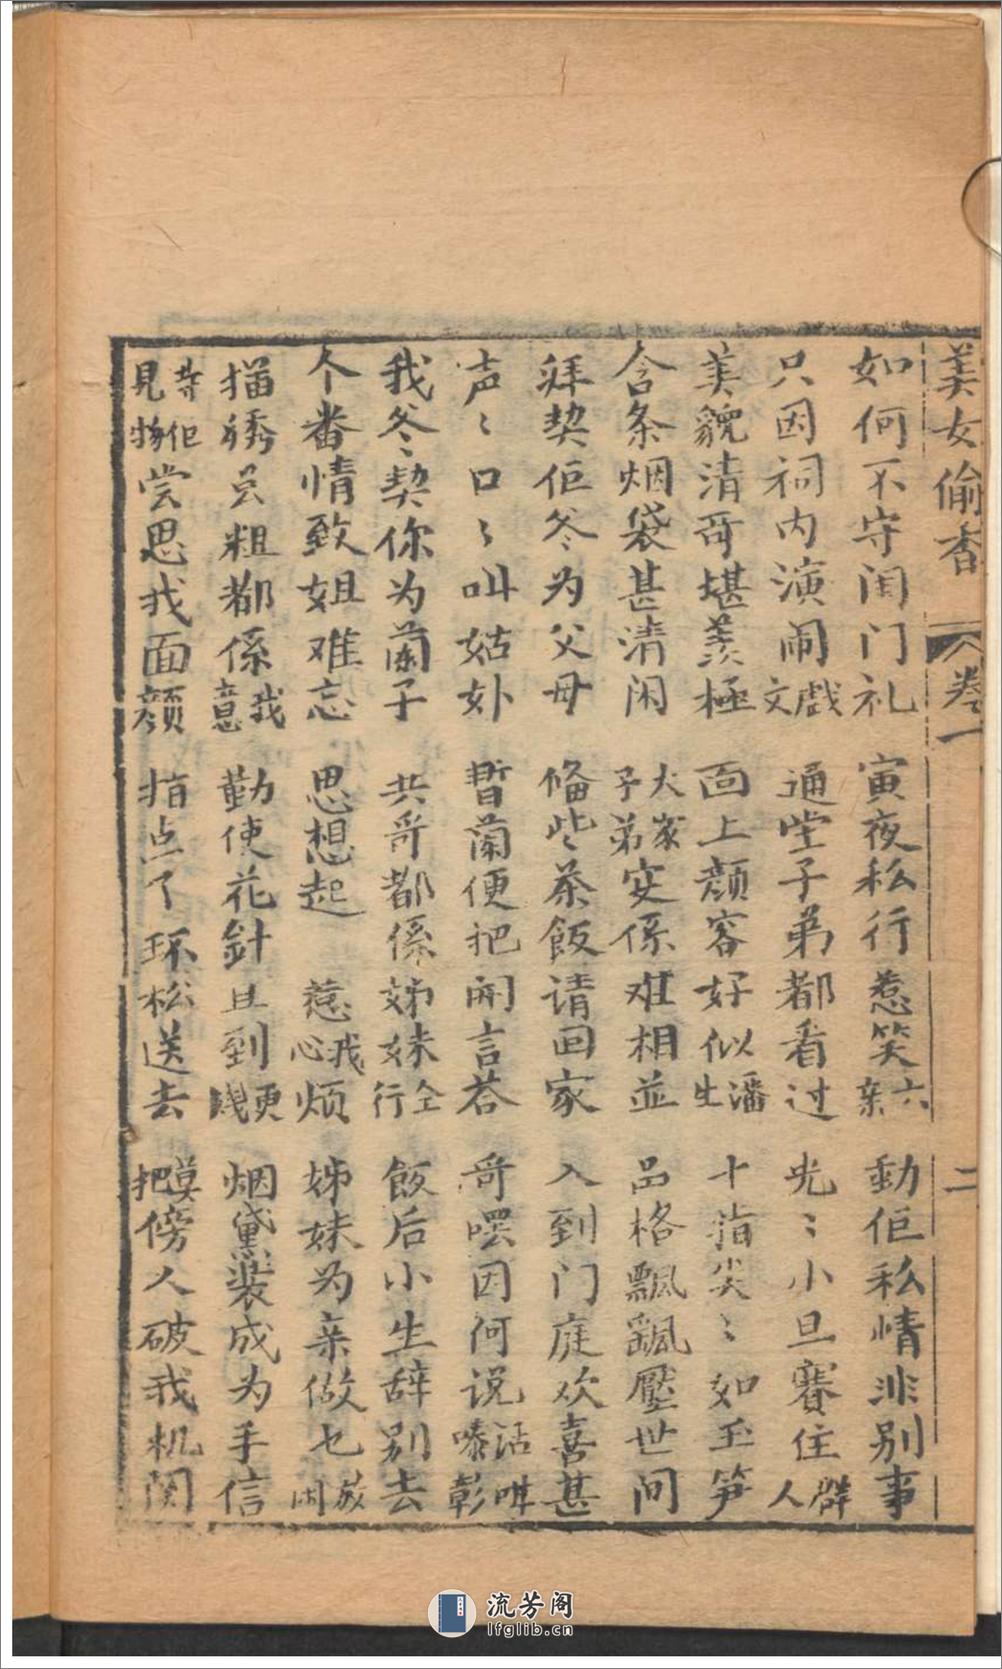 美女偷香 卷一 二
如何不守闺门礼 寅夜私行惹笑六亲 動佢私情非别事
只因祠内演闹戲文 通堂子弟都看过 光〻小旦賽住群人
美貌清哥堪羨極 面上颜容好似潘生 十指尖〻如玉笋
含条烟袋甚清闲 大家子弟实係难相並 品格飄飄壓世间
拜契佢爹为父母 俻些茶飯请回家 入到门庭欢喜甚
声〻口〻叫姑 暂蘭便把闹言答 哥喂因何说話
我爹契你为蘭子 共哥都係姊妹仝行 飯后小生辞别去
个番情致姐难忘 思想起 惹我心烦 姊妹为亲做乜放闲
描绣只粗都係我意 勤使花針且到更残 烟黛裝成为手信
等佢見物尝思我面颜 指点了环松送去 莫把傍人破我机関
流芳阁
lfglib.cn